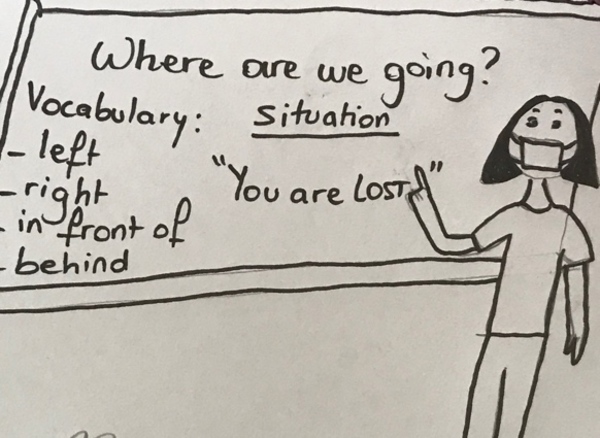 Where are we going?
Vocabulary:
- left
- right
- in front of
- behind
Situation
"You are LOST"